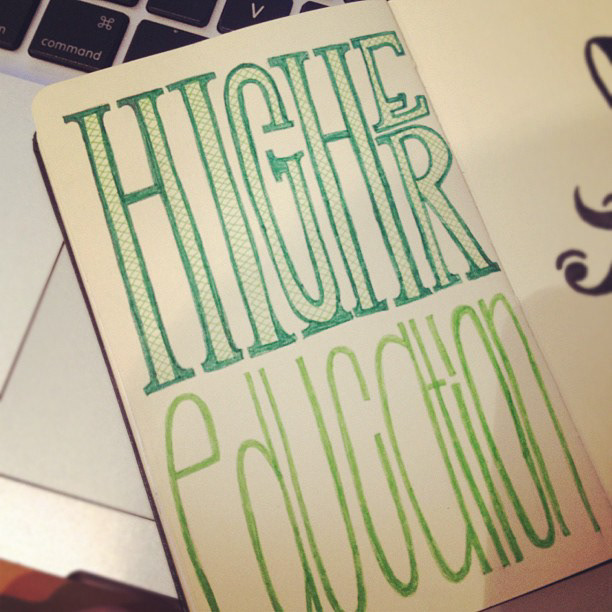 command
⌘
V
HIGHER
education